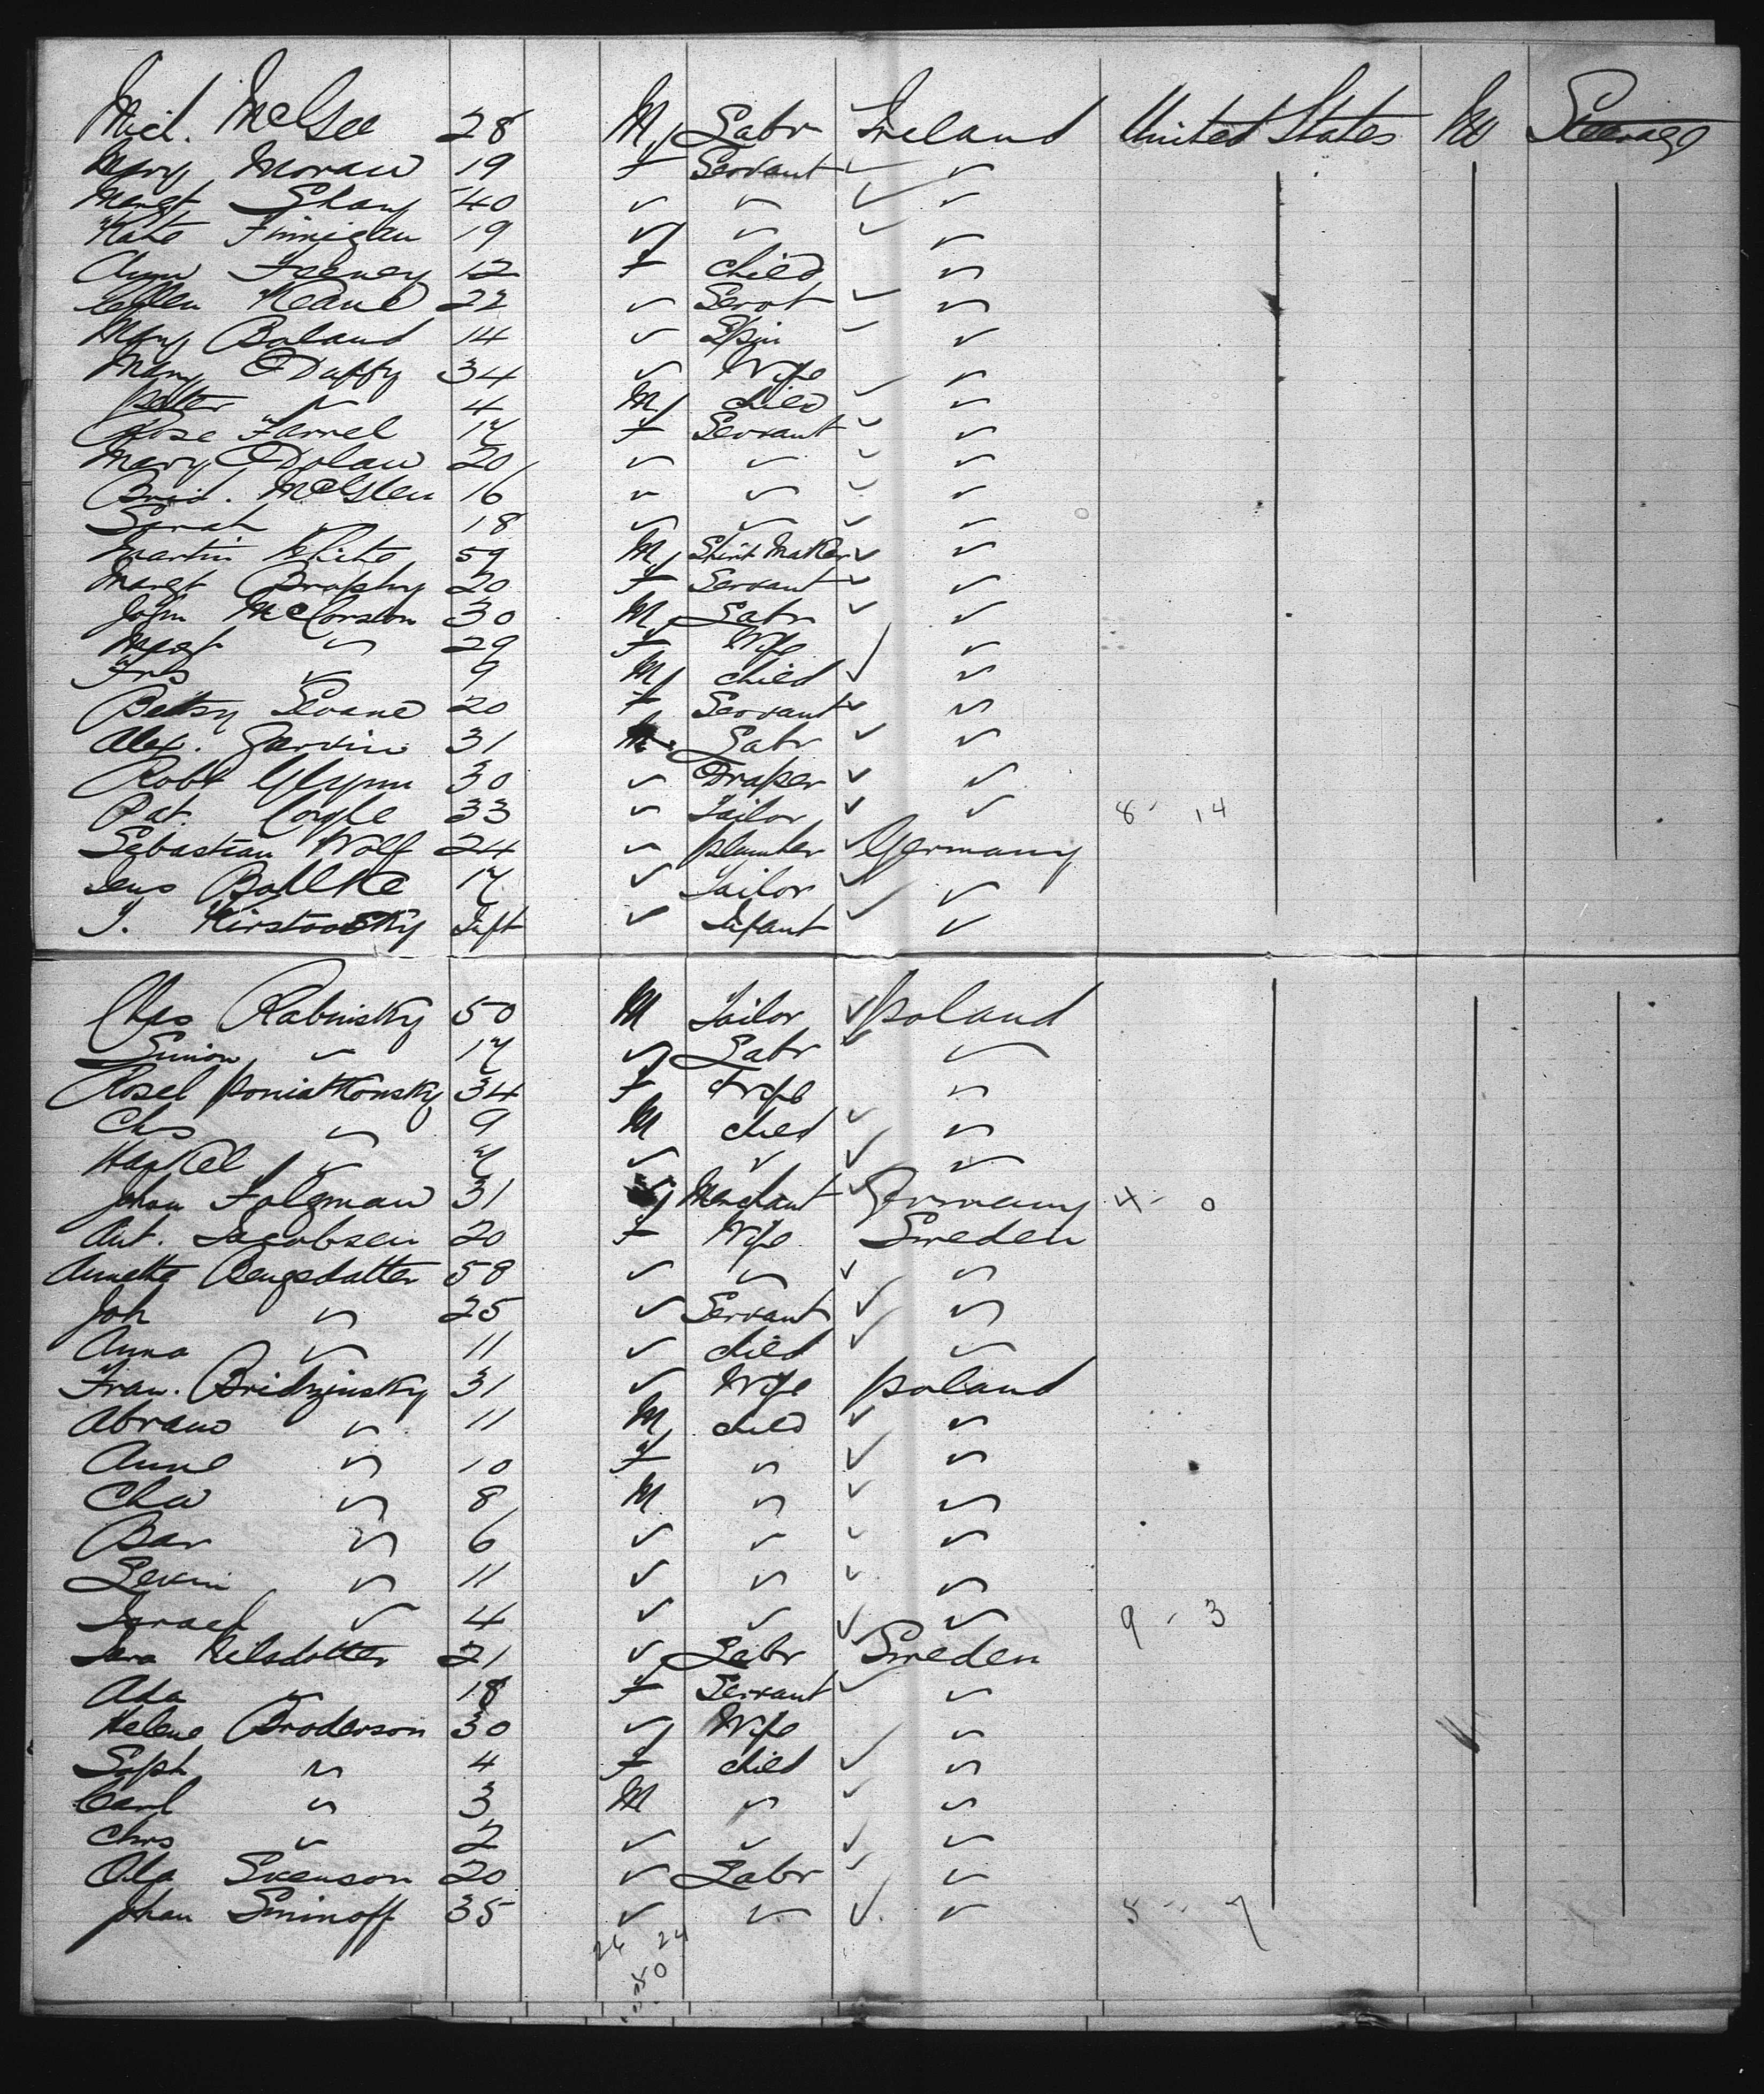 Mich. McGee 28 M Labr ✓ Ireland United States No Steerage
Mary Moran 19 F Servant ✓ ✓
Margt Shany 40 ✓ ✓ ✓ ✓
Kate Finnigan 19 ✓ ✓ ✓ ✓
Ann Feeney 12 F child ✓
Ellen Keane 22 ✓ Servt ✓ ✓
Mary Boland 14 ✓ Spin ✓ ✓
Mary O'Duffy 34 ✓ Wife ✓
Peter ✓ 4 M child ✓ ✓
Rose Farrel 17 F Servant ✓ ✓
Mary O'Dolan 20 ✓ ✓ ✓ ✓
Brid. McGlen 16 ✓ ✓ ✓ ✓
Sarah ✓ 18 ✓ ✓ ✓ ✓
Martin White 59 M Shirt Maker ✓ ✓
Margt Brophy 20 F Servant ✓ ✓
John McCorston 30 M Labr ✓ ✓
Margt ✓ 29 F Wife ✓ ✓
Frs ✓ 9 M child ✓ ✓
Betsy Devane 20 F Servant ✓ ✓
Alex. Garvin 31 M Labr ✓ ✓
Robt Glynn 30 ✓ Draper ✓ ✓
Pat. Coyle 33 ✓ Tailor ✓ ✓ 8 - 14
Sebastian Wolf 24 ✓ plumber ✓ Germany
Jens Bohlke 17 ✓ Tailor ✓ ✓
J. Kirstoosky Inft ✓ Infant ✓ ✓
Chas Rabinsky 50 M Tailor ✓ Poland
Simon ✓ 17 ✓ Labr ✓ ✓
Rosel Poniatkonsky 34 F Wife ✓
Chs ✓ 9 M child ✓ ✓
Hankel ✓ 7 ✓ ✓ ✓ ✓
Johan Folgman 31 Merchant ✓ Germany 4 - 0
Ant. Jacobsen 20 F Wife Sweden
Annette Bengsdatter 58 ✓ ✓ ✓ ✓
Joh ✓ 25 ✓ Servant ✓ ✓
Anna ✓ 11 ✓ child ✓ ✓
Fran. Bridzinsky 31 ✓ Wife Poland
Abram ✓ 11 M child ✓ ✓
Anne ✓ 10 F ✓ ✓ ✓
Cha ✓ 8 M ✓ ✓ ✓
Bar ✓ 6 ✓ ✓ ✓ ✓
Levin ✓ 11 ✓ ✓ ✓ ✓
Israel ✓ 4 ✓ ✓ ✓ ✓ 9 - 3
Jera Neilsdotter 21 ✓ Labr Sweden
Ada ✓ 18 F Servant ✓ ✓
Helene Broderson 30 ✓ Wife ✓
Soph ✓ 4 F child ✓ ✓
Carl ✓ 3 M ✓ ✓ ✓
Chrs ✓ 2 ✓ ✓ ✓ ✓
Ola Svenson 20 ✓ Labr ✓ ✓
Johan Sminoff 35 ✓ ✓ ✓ ✓ 5 - 7
26 24
50